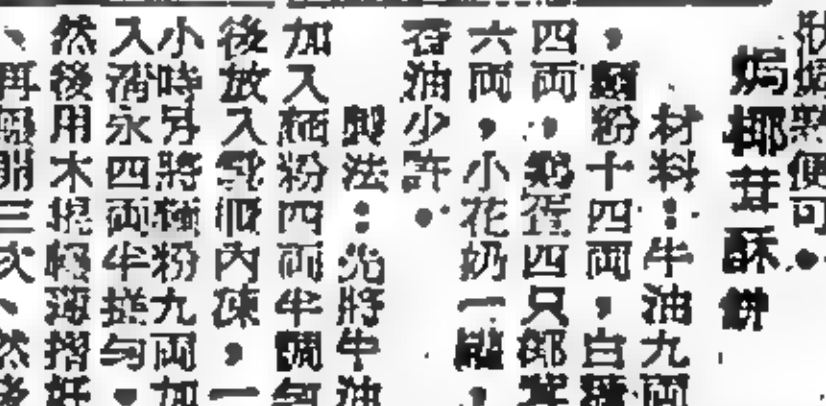 便可。
椰茸酥餅
材料：牛油九両
，麵粉十四両，白
四両，鷄蛋四只，椰茸
六両，小花奶一
油少許。
製法：先將牛油
加入麵粉四両半調勻
後放入雪柜內凍，一
小時另將麵粉九両加
入清水四両半搓勻，
然後用木棍輾薄摺好
、再輾開三次、然後